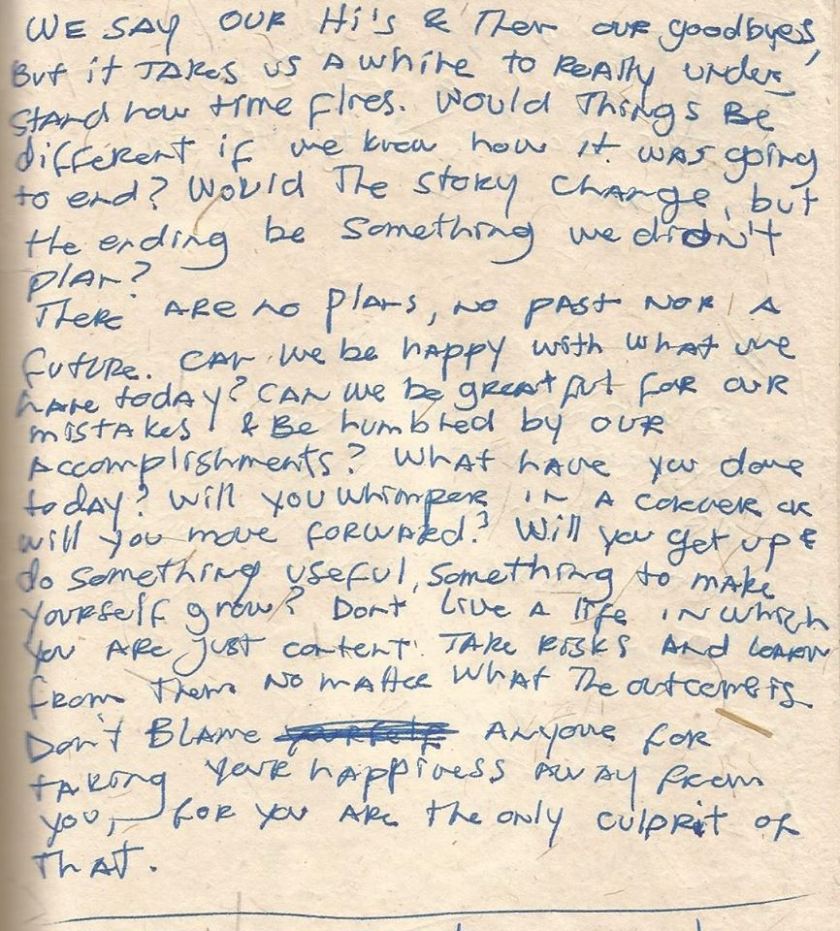 WE SAY OUR Hi's & Then our goodbyes,
But it TAKES US A while to REAlly under
STAND how time flies. Would Things BE
different if we knew how it WAS going
to end? Would The STORY CHANge, but
the ending be Something we didn't
PlAn?
There ARE no PlAns, NO PAST NOR A
Future. CAN we be HAPPY with WHAT we
HAVE today? CAN we be greatful for OUR
MISTAKES & BE humbled by OUR
Accomplishments? WHAT HAVE you done
today? Will you WHIMPER IN A CORNER OR
will you move FORWARD? Will you get up &
do something useful, something to make
yourself grow? Dont Live A life IN WHICH
You ARE just content. TAKE RISKS AND LEARN
FROM Them NO MATTER WHAT The outcome is.
Don't BLAME yourself ANYone for
TAKING YOUR HAPPINESS AWAY from
you, for you ARE the only culprit of
THAT.